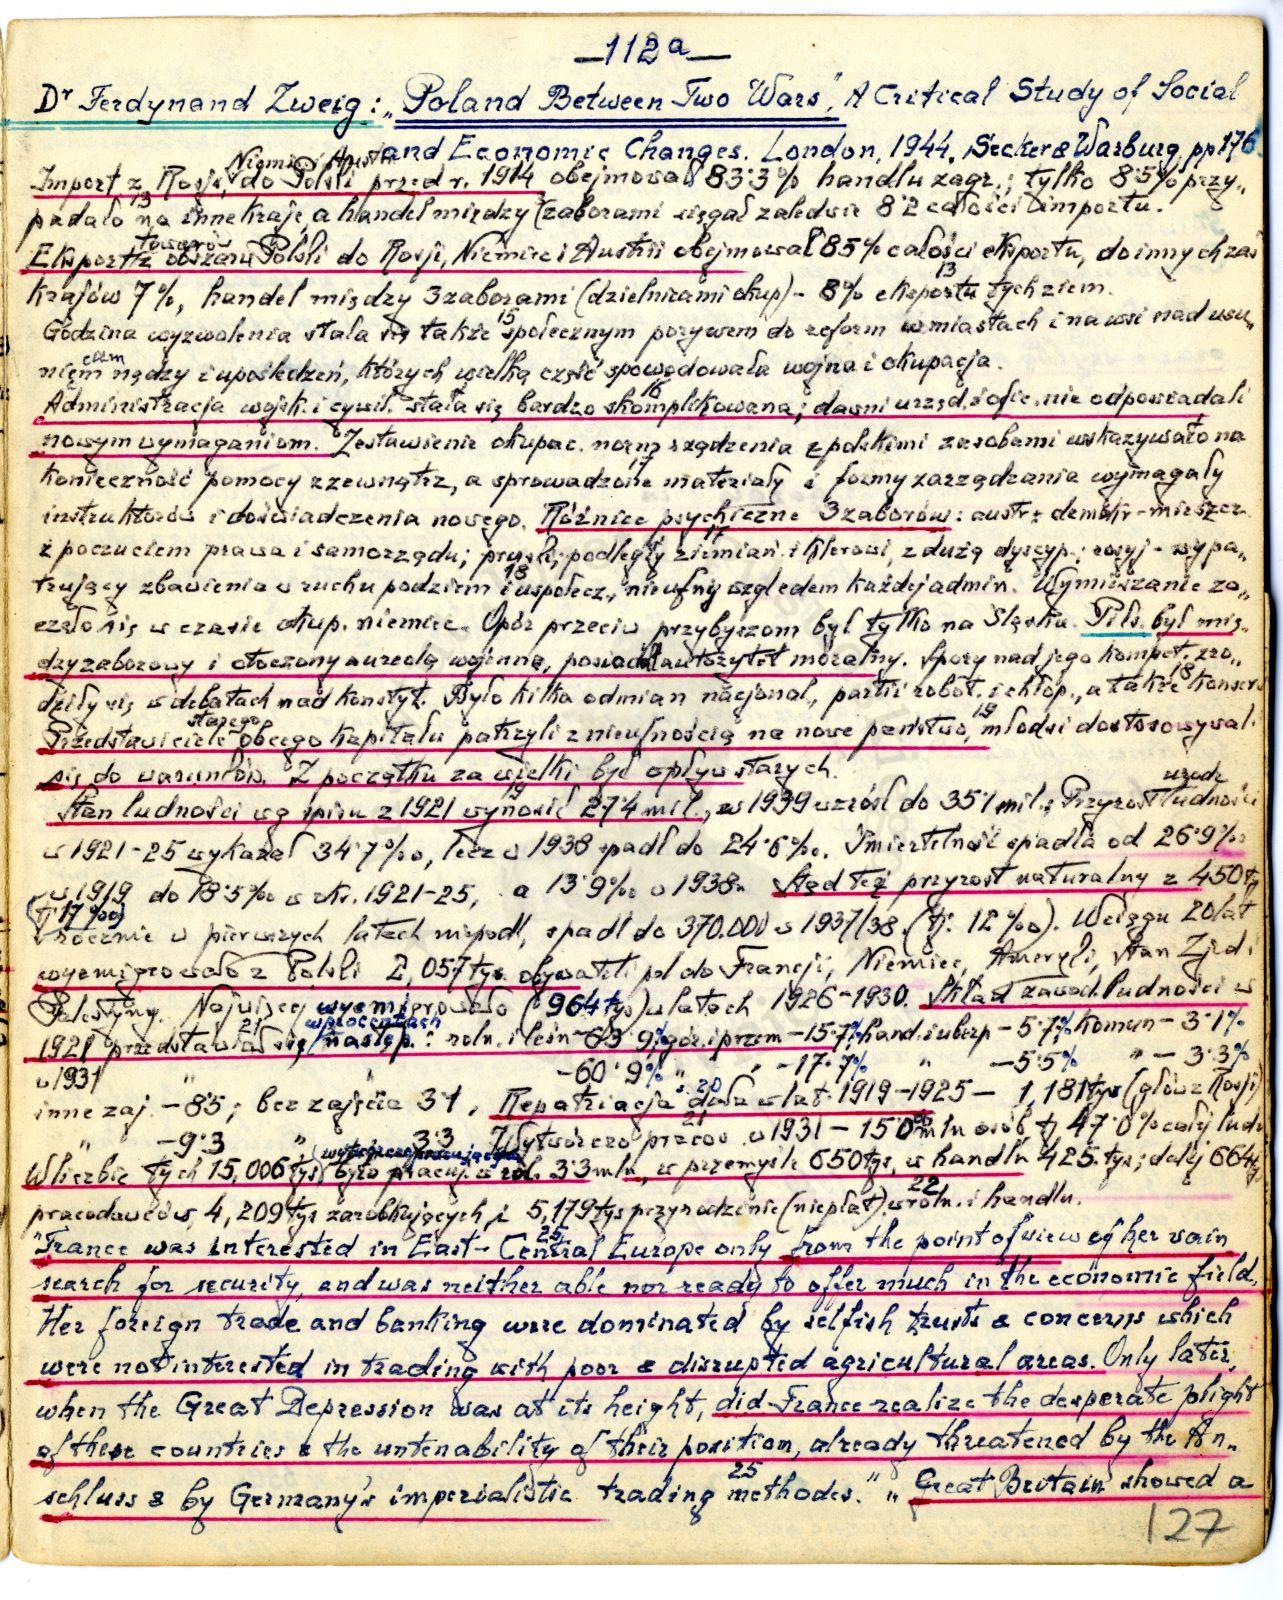 —112a—
Dr Ferdynand Zweig: „Poland Between Two Wars”, A Critical Study of Social
and Economic Changes. London, 1944, Secker & Warburg, pp 176.
Niemiec i Austrii
Import z Rosji, do Polski przed r. 1914 obejmował 83·3% handlu zagr.; tylko 8·5% przy„
padało na inne kraje, a handel między (zaborami sięgał zaledwie 8·2 całości importu. 13
towarów
Eksport z obszaru Polski do Rosji, Niemiec i Austrii obejmował 85% całości eksportu, do innych zaś
krajów 7%, handel między 3 zaborami (dzielnicami okup) - 8% eksportu tych ziem. 13
Godzina wyzwolenia stała się także społecznym porywem do reform w miastach i na wsi nad usu„ 15
nięciem nędzy i upośledzeń, których wielką część spowodowała wojna i okupacja.
Administracja wojsk. i cywil. stała się bardzo skomplikowana; dawni urzęd. i ofic. nie odpowiadali 16
nowym wymaganiom. Zestawienie okupac. norm rządzenia z polskimi zasobami wskazywało na
konieczność pomocy z zewnątrz, a sprowadzone materiały i formy zarządzania wymagały 17
instruktorów i doświadczenia nowego. Różnice psychiczne 3 zaborów: austr. demokr-mieszcz.
z poczuciem prawa i samorządu; prusk. podległy ziemian. i klerowi, z dużą dyscyp.; rosyj - wypa„ 17
trujący zbawienia w ruchu podziem i uspołecz., nieufny względem każdej admin. Wymieszanie za„ 18
częło się w czasie okup. niemiec. Opór przeciw przybyszom był tylko na Śląsku. Piłs. był mię„
dzyzaborowy i otoczony aureolą wojenną, posiadał autorytet moralny. Spory nad jego kompet. zro„
dziły się w debatach nad konstyt. Było kilka odmian nacjonal., partii robót. i chłop., a także konserw 18
starego
Przedstawiciele obcego kapitału patrzyli z nieufnością na nowe państwo, młodsi dostosowywal. 19
się do warunków. Z początku za wielki był wpływ starych.
urodz
Stan ludności wg spisu z 1921 wynosił 27·4 mil., w 1939 wzrósł do 35·1 mil.; Przyrost ludności 19
w 1921-25 wykazał 34·7‰, lecz w 1938 spadł do 24·6‰. Śmiertelność spadła od 26·9‰
w 1919 do 18·5‰ w okr. 1921-25, a 13·9‰ w 1938. Stąd też przyrost naturalny z 450 t
(tj 17‰)
rocznie w pierwszych latach niepodl, spadł do 370.000 w 1937/38. (tj. 12‰). W ciągu 20 lat
wyemigrowało z Polski 2,057 tys. obywateli pol do Francji, Niemiec, Ameryki, Stan Zjed i
Palestyny. Najwięcej wyemigrowało (964 tys) w latach 1926-1930. Skład zawod. ludności w
w procentach
1921 przedstawiał się następ.: roln. i leśn - 63·9%; gór. i przem - 15·7% hand. i ubezp - 5·7%; komun - 3·1% 21
w 1931 " " -60·9% " " -17·7% " -5·5% " - 3·3%
inne zaj. - 8·5; bez zajęcia 3·1. Repatriacja dała w lat. 1919-1925 - 1,181 tys (głów z Rosji) 20
" -9·3 " 3·3 Wytwórczo pracow. w 1931 - 15·00 mln osób, tj 47·0% całej ludn 21
W liczbie tych 15,006 tys było pracuj. w rol. 3·3 mln, w przemyśle 650 tys, w handlu 425 tys; dalej 664 tys
pracodawców, 4,209 tys zarobkujących i 5,179 tys przy rodzinie (niepłat). w roln. i handlu. 22
"France was interested in East-Central Europe only from the point of view of her vain 25
search for security, and was neither able nor ready to offer much in the economic field.
Her foreign trade and banking were dominated by selfish trusts & concerns which
were not interested in trading with poor & disrupted agricultural areas. Only later,
when the Great Depression was at its height, did France realize the desperate plight
of these countries & the untenability of their position, already threatened by the An„
schluss & by Germany's imperialistic trading methodes." „Great Britain showed a 25
127